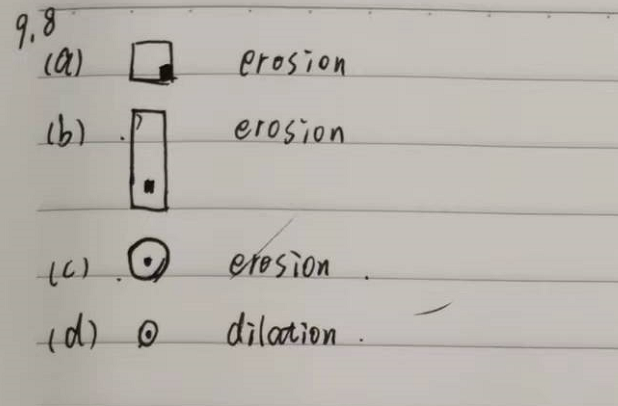 9.8
(a) erosion
(b) erosion
(c) erosion.
(d) dilation.